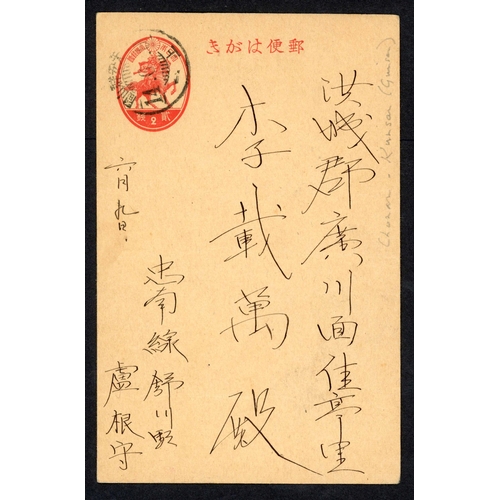 郵便はがき
洪城郡廣川面佳亭里
李載萬殿
六月九日
忠南線舒川駅
盧根守